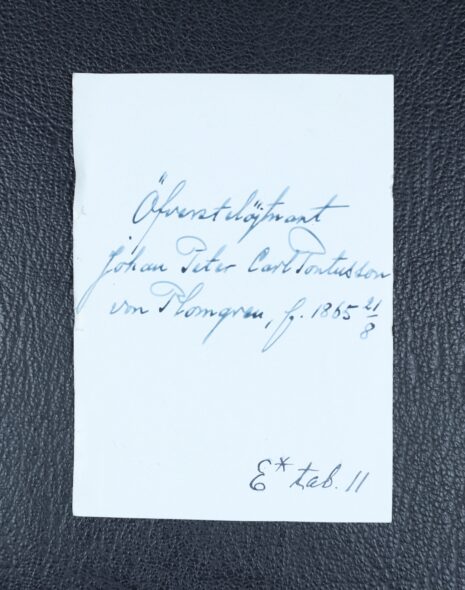 Öfverstelöjtnant
Johan Peter Carl Pontusson
von Plomgren, f. 1865 21/8
E* tab. 11